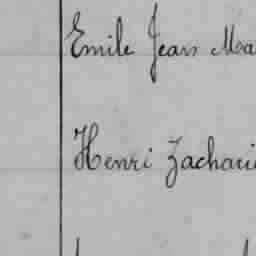 Emile Jean Ma
Henri Zachari